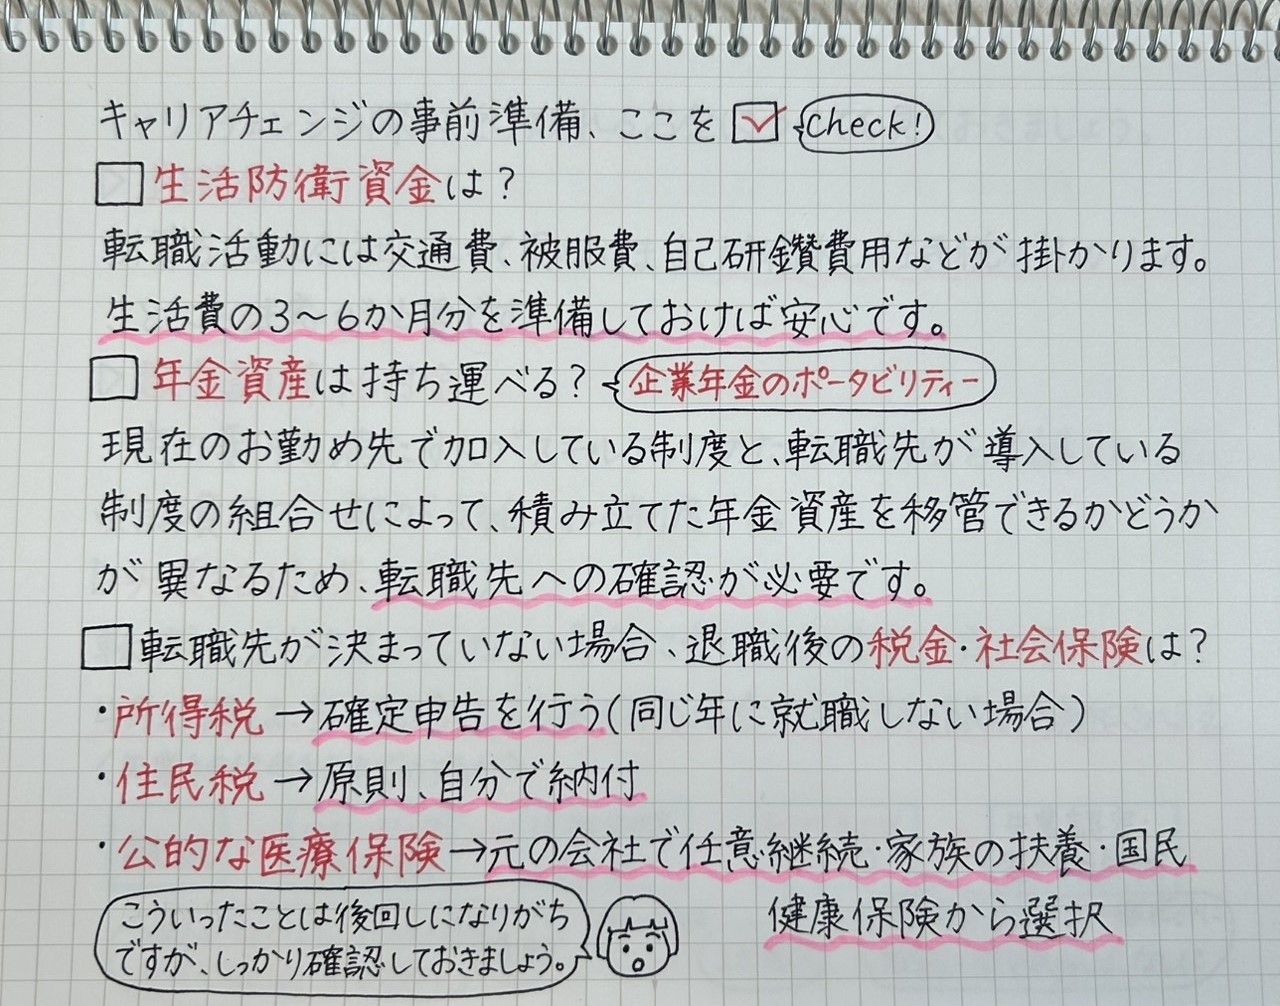 キャリアチェンジの事前準備、ここを☑ Check!
□生活防衛資金は?
転職活動には交通費、被服費、自己研鑽費用などが掛かります。
生活費の3~6か月分を準備しておけば安心です。
□年金資産は持ち運べる? 企業年金のポータビリティー
現在のお勤め先で加入している制度と、転職先が導入している
制度の組合せによって、積み立てた年金資産を移管できるかどうか
が異なるため、転職先への確認が必要です。
□転職先が決まっていない場合、退職後の税金・社会保険は?
・所得税→確定申告を行う(同じ年に就職しない場合)
・住民税→原則、自分で納付
・公的な医療保険→元の会社で任意継続・家族の扶養・国民
健康保険から選択
こういったことは後回しになりがち
ですが、しっかり確認しておきましょう。